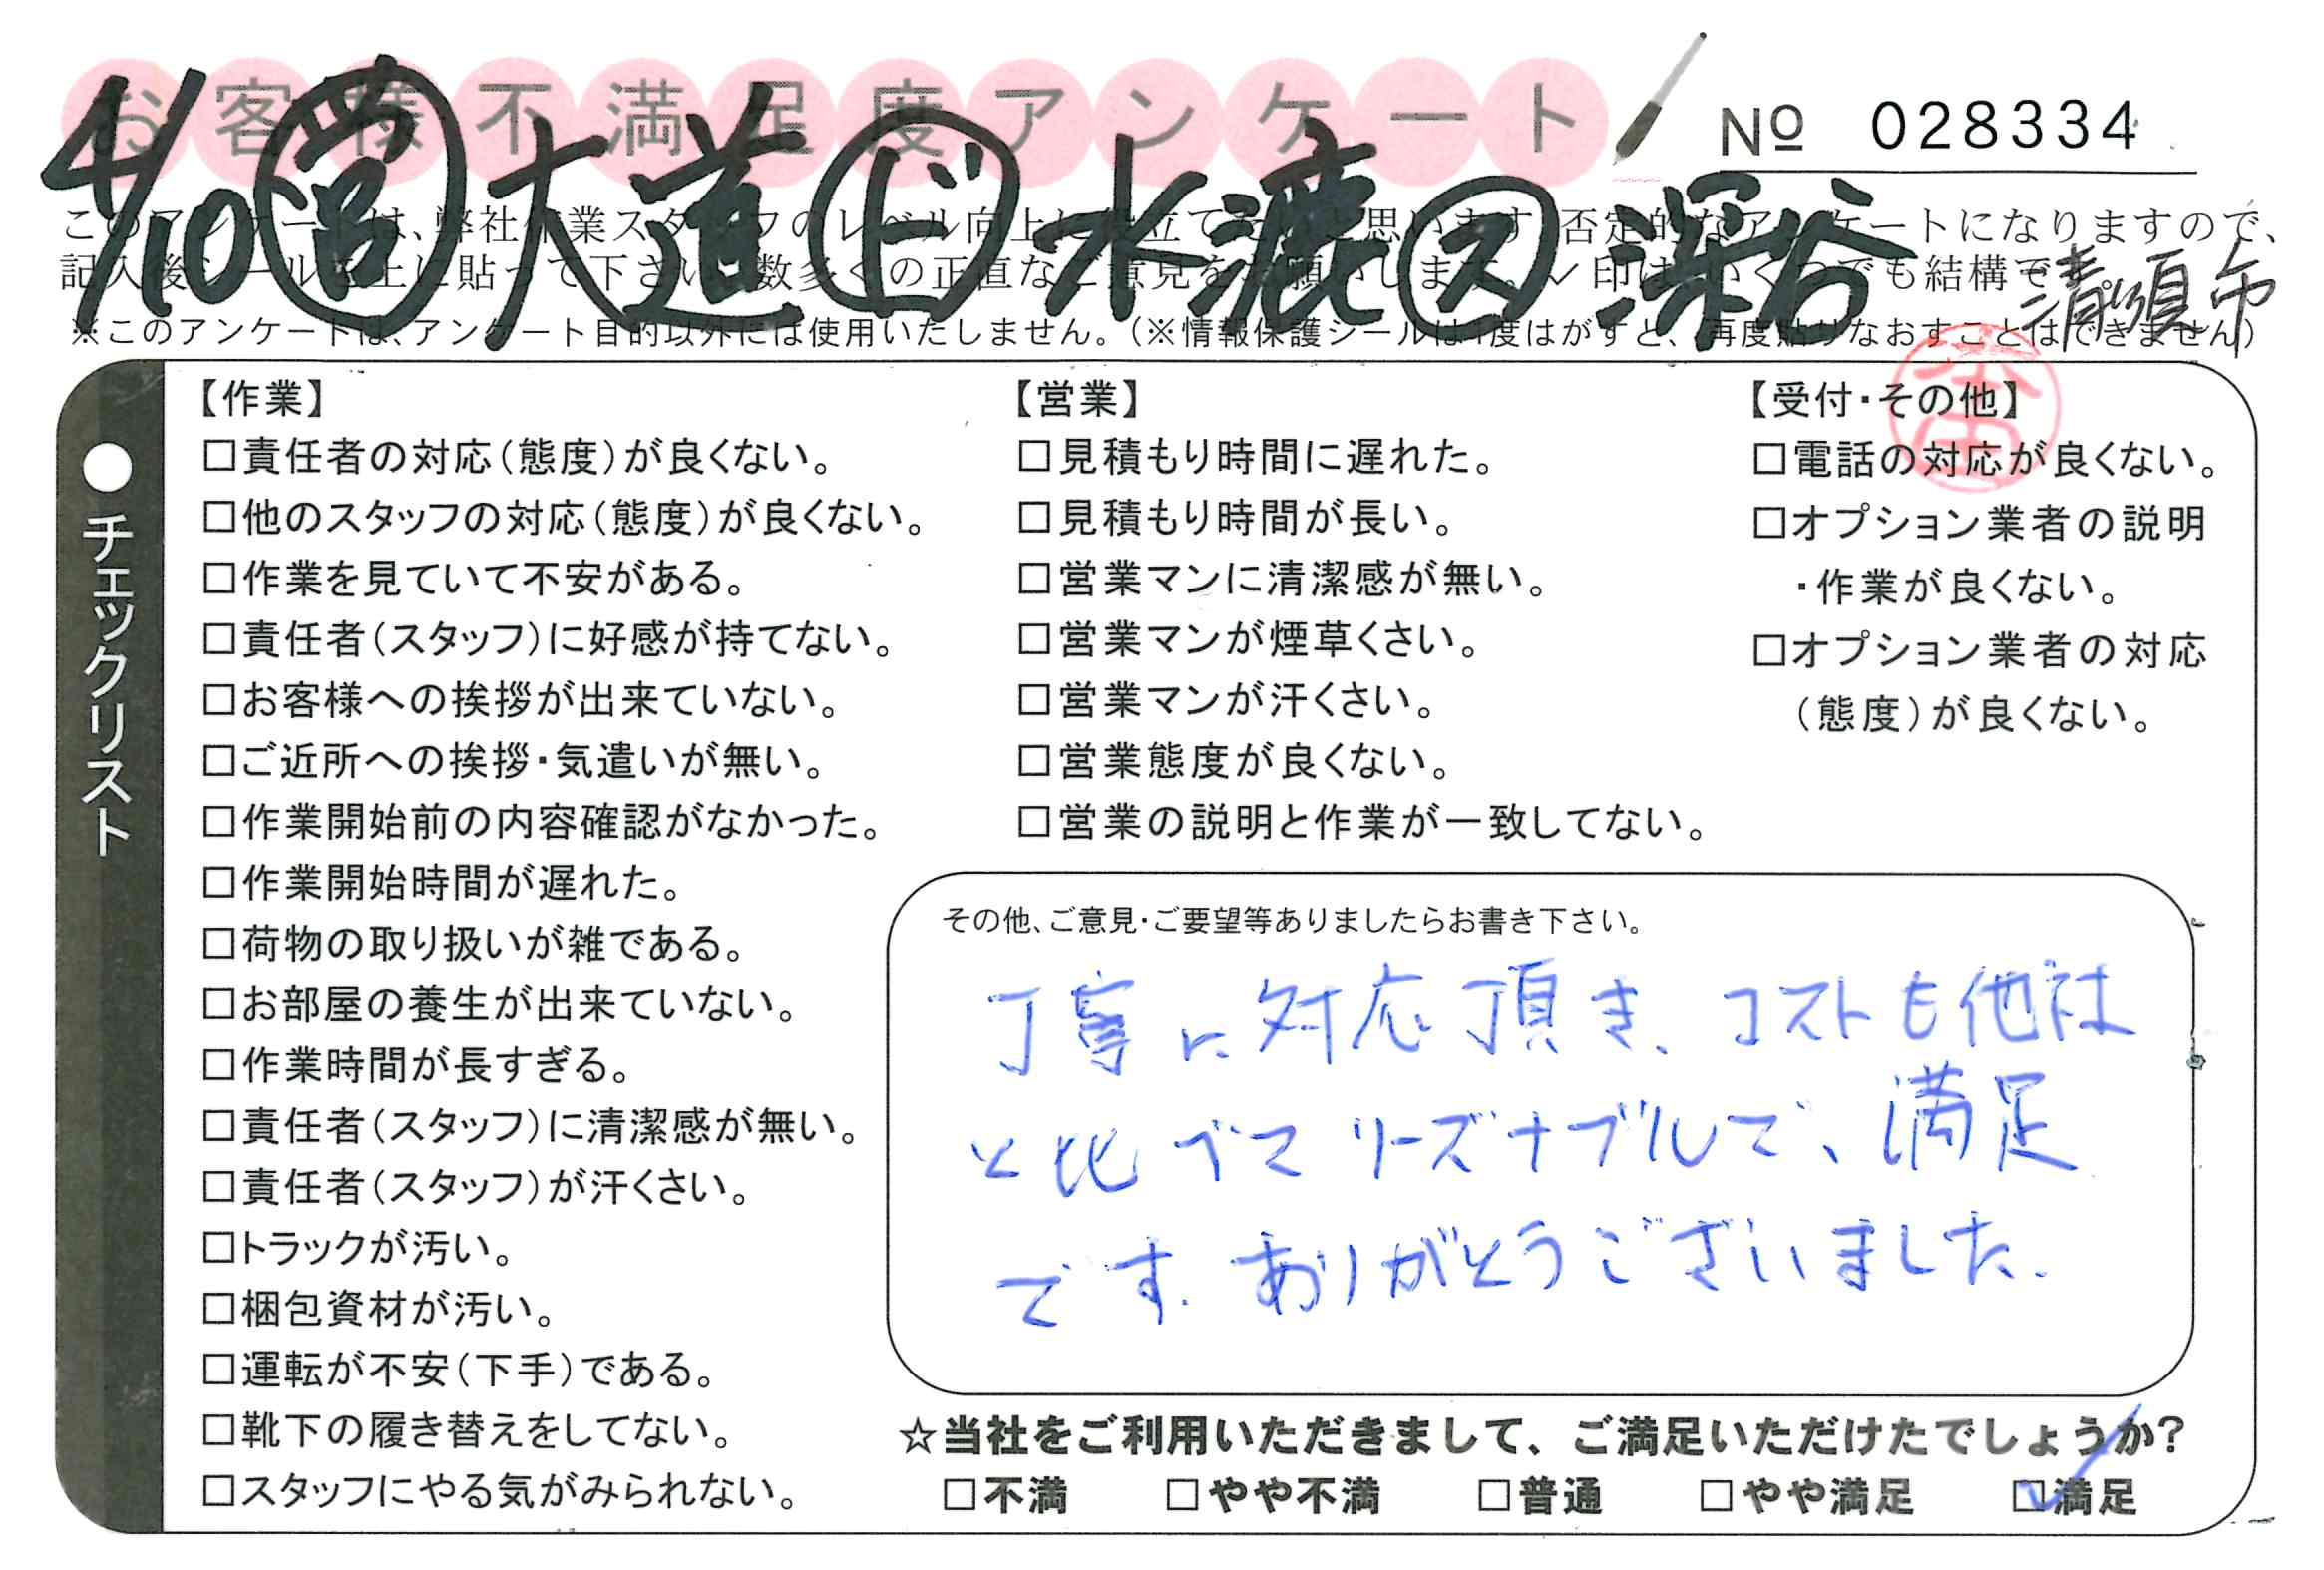 お客様不満足度アンケート
№ 028334
4/10 営 大道 ド 水漉 ス 深谷
清須市
このアンケートは、弊社作業スタッフのレベル向上に役立てたいと思います。否定的なアンケートになりますので、
記入後シールを上に貼って下さい。数多くの正直なご意見をお願いします。✓印はいくつでも結構です。
※このアンケートは、アンケート目的以外には使用いたしません。（※情報保護シールは1度はがすと、再度貼りなおすことはできません）
●チェックリスト
【作業】
□責任者の対応（態度）が良くない。
□他のスタッフの対応（態度）が良くない。
□作業を見ていて不安がある。
□責任者（スタッフ）に好感が持てない。
□お客様への挨拶が出来ていない。
□ご近所への挨拶・気遣いが無い。
□作業開始前の内容確認がなかった。
□作業開始時間が遅れた。
□荷物の取り扱いが雑である。
□お部屋の養生が出来ていない。
□作業時間が長すぎる。
□責任者（スタッフ）に清潔感が無い。
□責任者（スタッフ）が汗くさい。
□トラックが汚い。
□梱包資材が汚い。
□運転が不安（下手）である。
□靴下の履き替えをしてない。
□スタッフにやる気がみられない。
【営業】
□見積もり時間に遅れた。
□見積もり時間が長い。
□営業マンに清潔感が無い。
□営業マンが煙草くさい。
□営業マンが汗くさい。
□営業態度が良くない。
□営業の説明と作業が一致してない。
【受付・その他】
□電話の対応が良くない。
□オプション業者の説明
・作業が良くない。
□オプション業者の対応
（態度）が良くない。
その他、ご意見・ご要望等ありましたらお書き下さい。
丁寧に対応頂き、コストも他社
と比べてリーズナブルで、満足
です。ありがとうございました。
☆当社をご利用いただきまして、ご満足いただけたでしょうか？
□不満 □やや不満 □普通 □やや満足 ☑満足